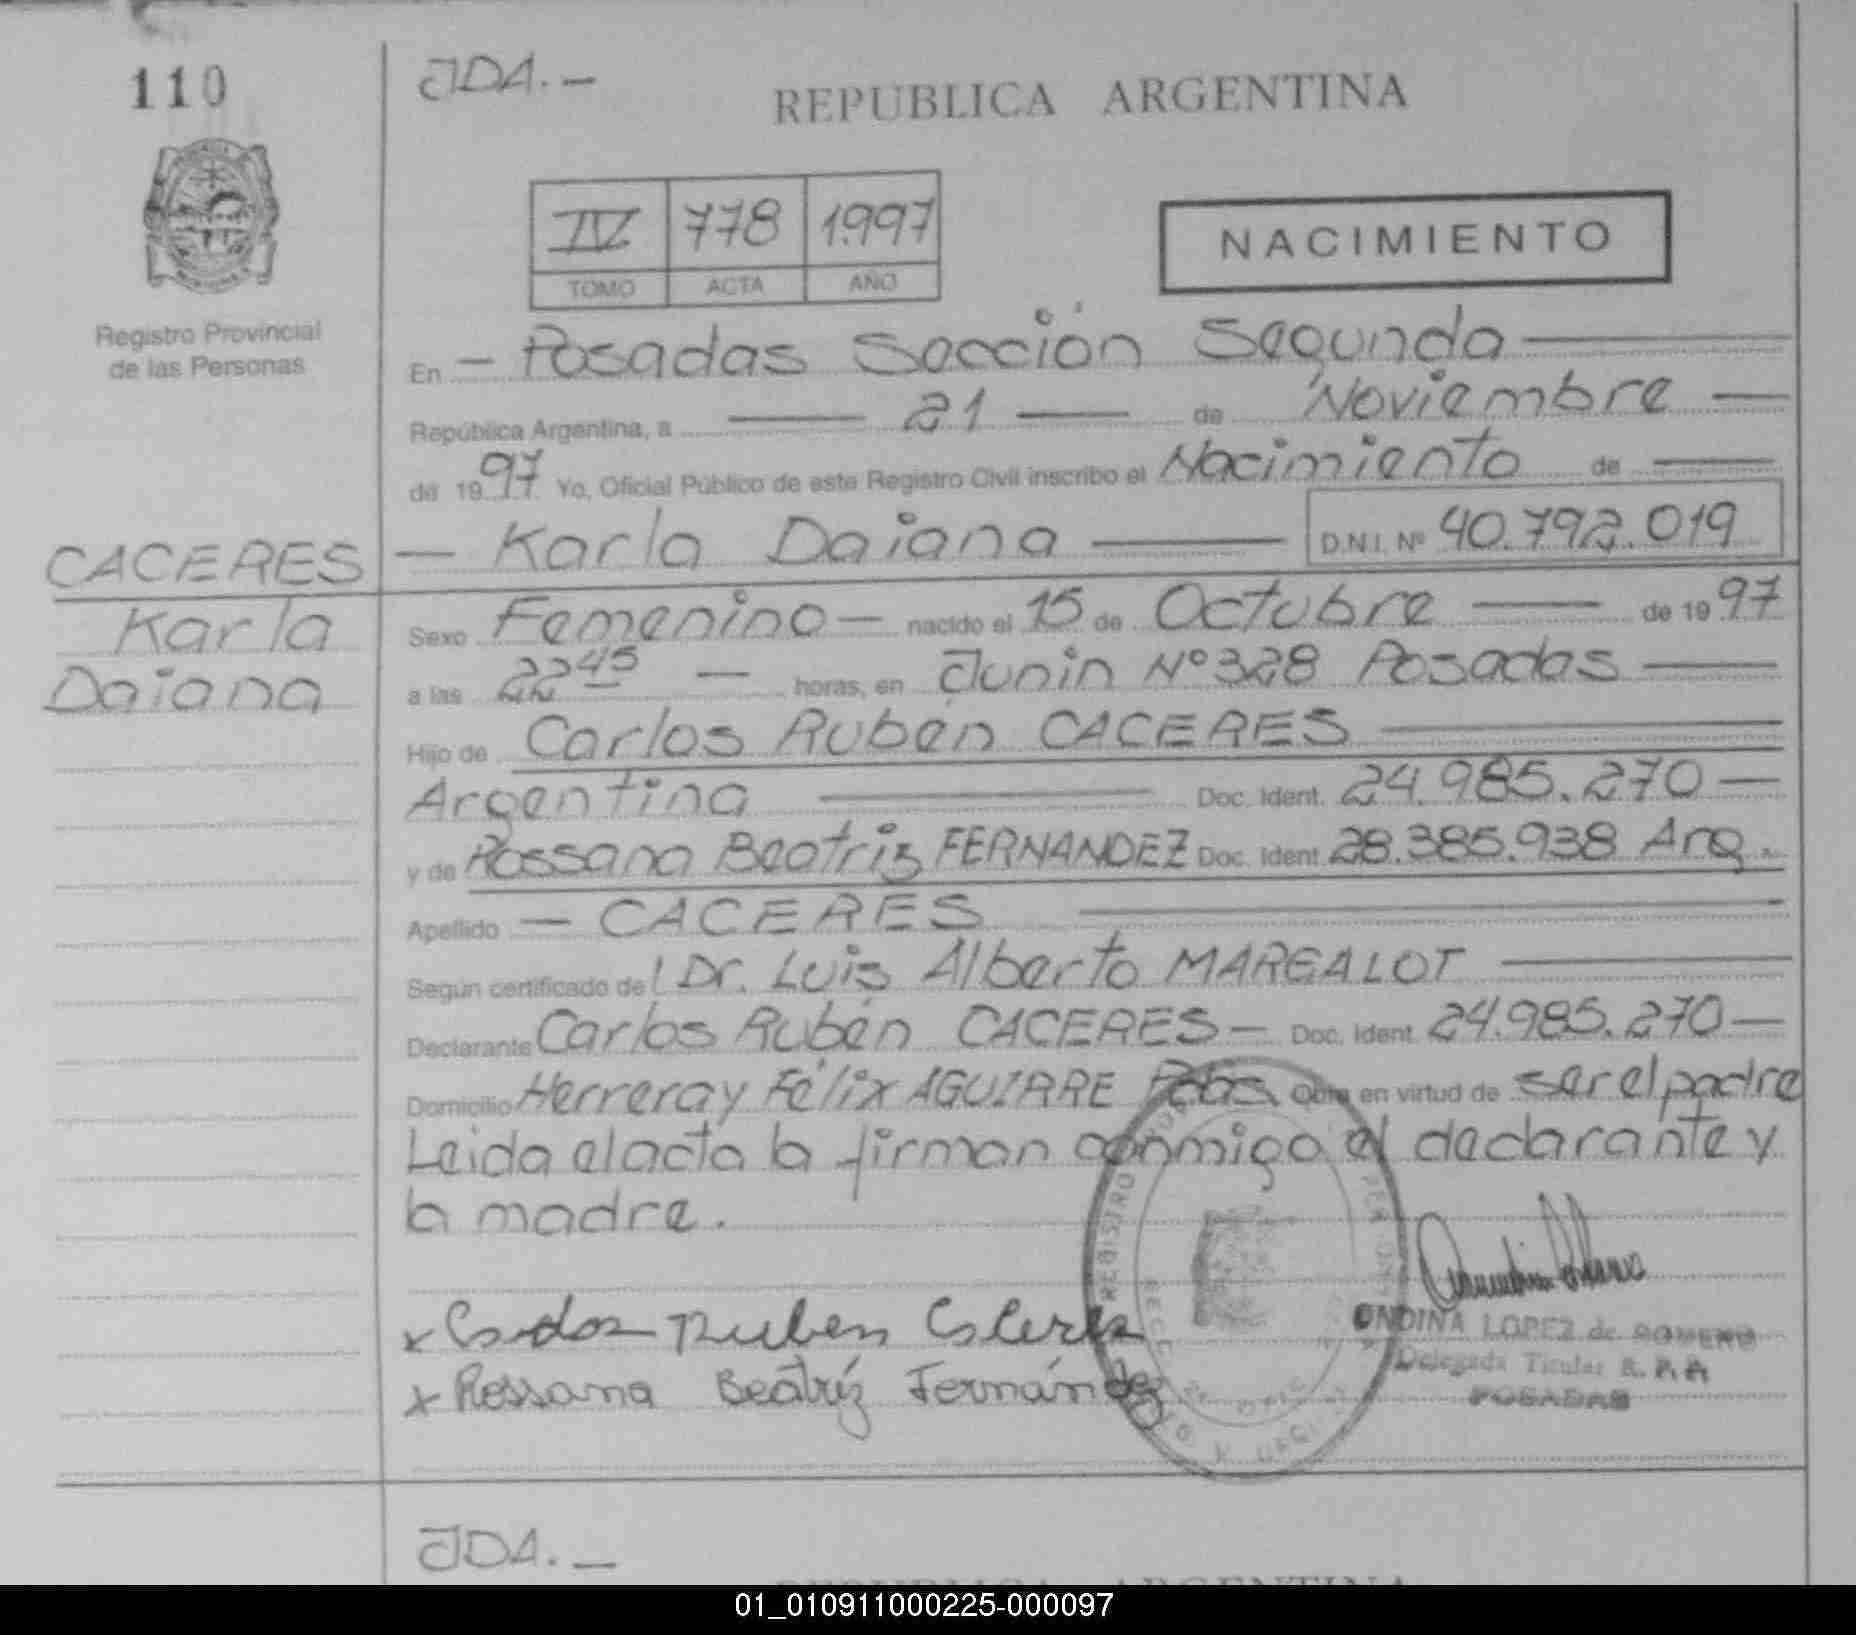 110
JDA.-
REPUBLICA ARGENTINA
IV 778 1.997
TOMO ACTA AÑO
NACIMIENTO
Registro Provincial
de las Personas
En - Posadas Sección Segunda
República Argentina, a 21 de Noviembre
de 1997 Yo, Oficial Público de este Registro Civil inscribo el Nacimiento de
CACERES
Karla Daiana D.N.I. Nº 40.792.019
Karla
Daiana
Sexo Femenino - nacido el 15 de Octubre de 1997
a las 22 45 horas, en Junin Nº 328 Posadas
Hijo de Carlos Rubén CACERES
Argentina Doc. Ident. 24.985.270
y de Rossana Beatriz FERNANDEZ Doc. Ident. 28.385.938 Arg.
Apellido - CACERES
Según certificado del Dr. Luis Alberto MARGALOT
Declarante Carlos Rubén CACERES - Doc. Ident. 24.985.270
Domicilio Herrera y Félix AGUIRRE Pdas Obra en virtud de ser el padre
Leida el acta la firman conmigo el declarante y
la madre.
x Carlos Ruben Caceres
x Rossana Beatríz Fernández
ONDINA LOPEZ de ROMERO
Delegada Titular R. P. A
POSADAS
REGISTRO
JDA.-
REPUBLICA ARGENTINA
01_010911000225-000097